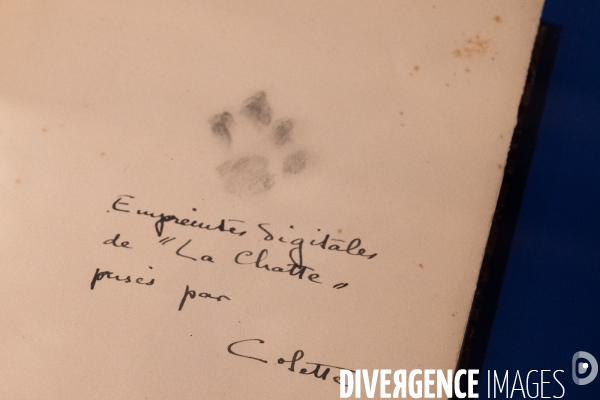 Empreintes digitales
de "La Chatte"
prises par
Colette
DIVERGENCE IMAGES